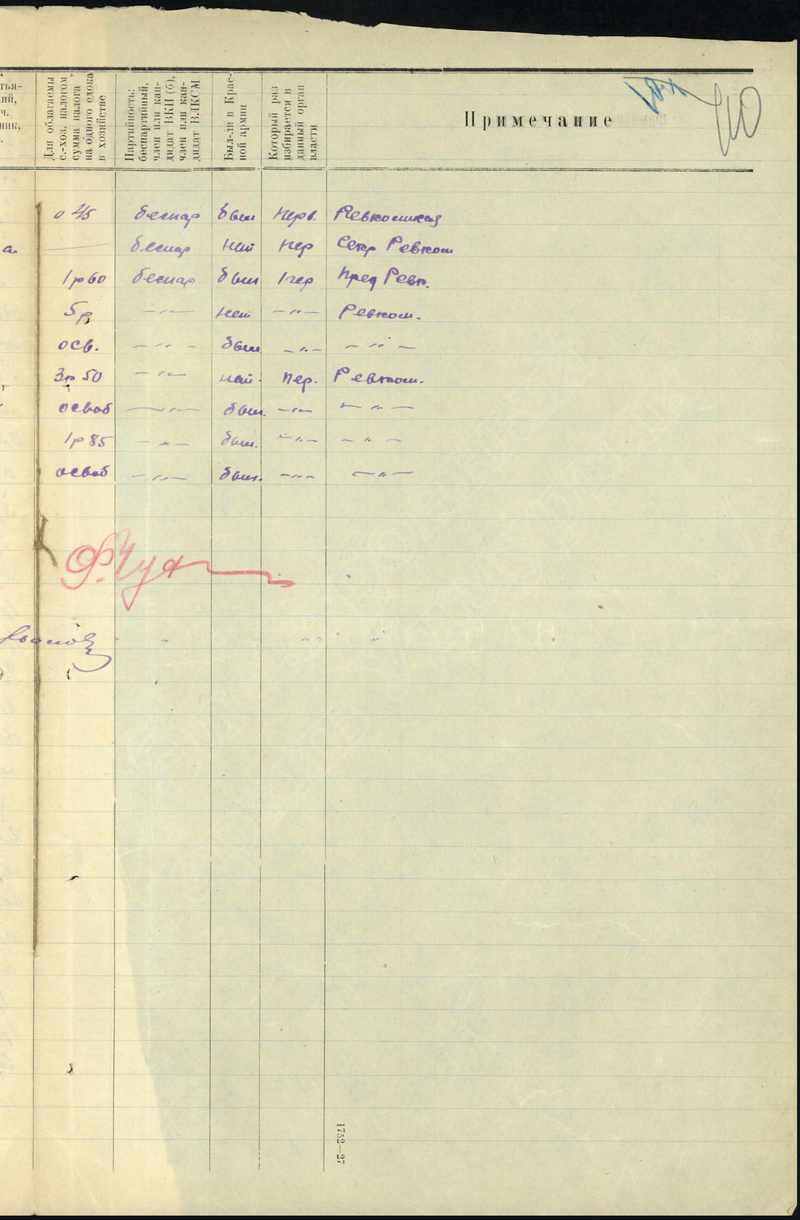 тья-
ий,
ч.
ник,
Для облагаемы
с.-хоз. налогом
сумма налога
на одного едока
в хозяйстве
Партийность:
беспартийный,
член или кан-
дидат ВКП (б),
член или кан-
дидат ВЛКСМ
Был-ли в Крас-
ной армии
Который раз
избирается в
данный орган
власти
Примечание
40
0 45 беспар был перв.
а. беспар нет пер Секр Ревком
1 р 60 беспар был 1 пер Пред Ревк.
5 р — „ — нет — „ — Ревком.
осв. — „ — был — „ — — „ —
3 р 50 — „ — пер. Ревком.
освоб — „ — был. — „ — — „ —
1 р 85 — „ — был. — „ — — „ —
освоб — „ — был. — „ — — „ —
1752—27